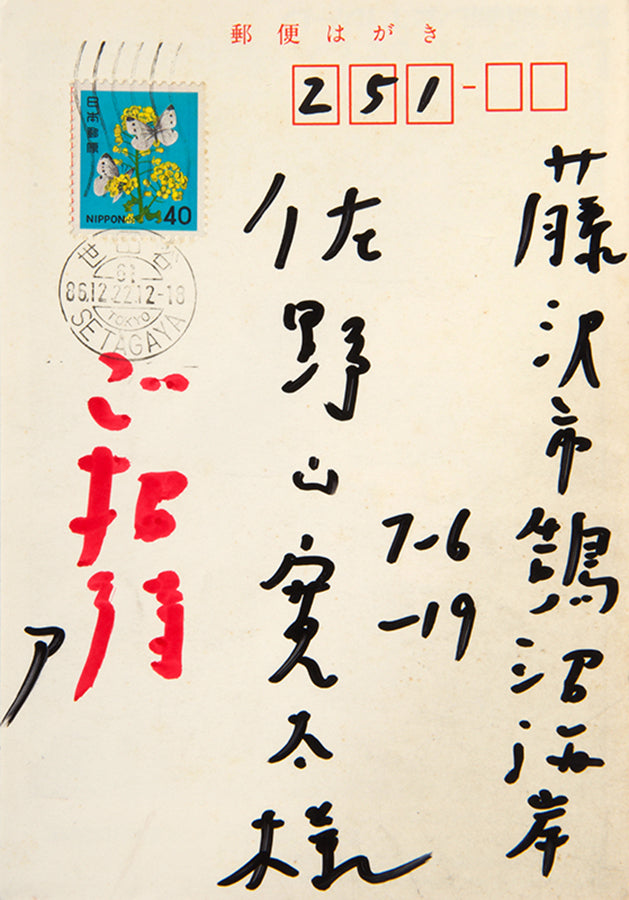 郵便はがき
251
日本郵便
NIPPON 40
世田谷
86.12.22.12-18
TOKYO
SETAGAYA
藤沢市鵠沼海岸
7-6
-19
佐野山寛太様
ご招待
ア